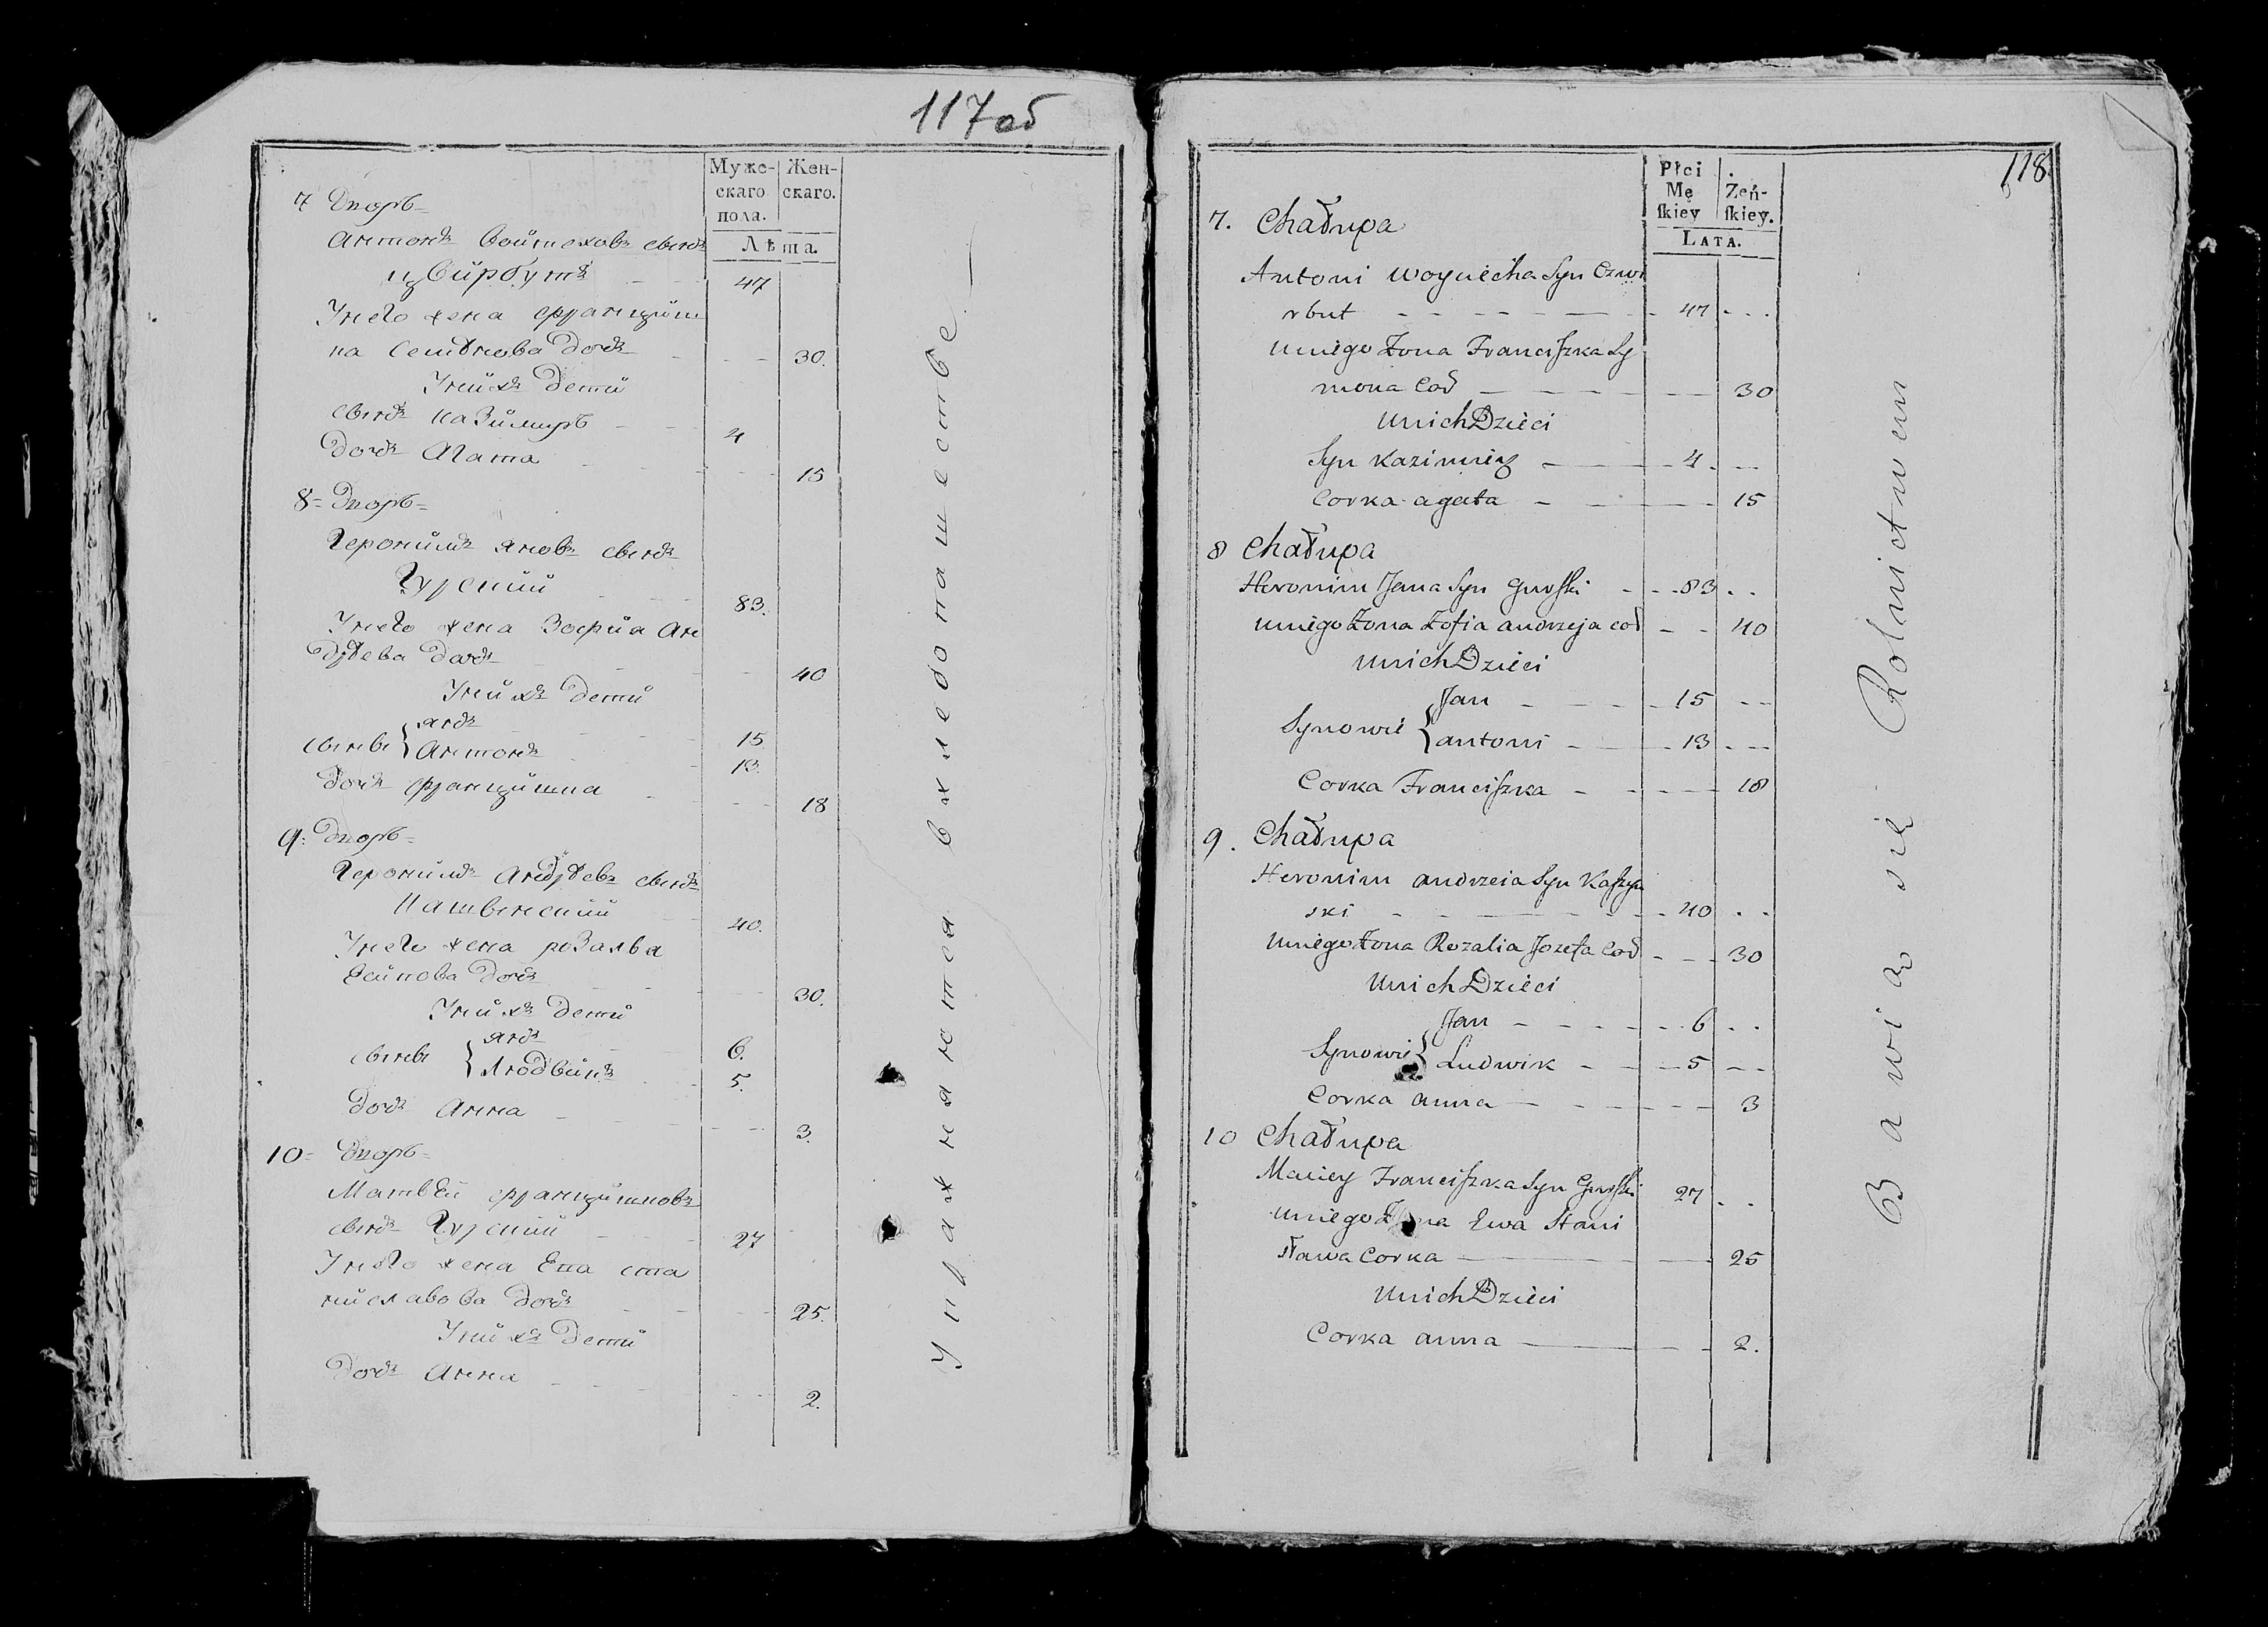 117об
Муже-
скаго
пола.
Жен-
скаго.
Лѣта.
7 Дворъ
Антонъ Войтеховъ сынъ
Цвирбутъ 47
У него жена Францишка
Семенова дочь 30.
У нихъ дети
сынъ Казимиръ 4
дочь Агата 15
8 = Дворъ =
Геронимъ Яновъ сынъ
Гурский 83.
У него жена Зофиа Ан
дреева дочь 40
У нихъ дети
сыновья { Янъ 15
Антонъ 13.
дочь Францишка 18
9: Дворъ =
Геронимъ Андреевъ сынъ
40.
У него жена Розалия
дочь 30.
У нихъ дети
сыновья { Янъ 6.
Людвикъ 5.
дочь Анна 3.
10 = Дворъ =
Матвей Францишковъ
сынъ Гурский 27
У него жена Ева Ста
ниславова дочь 25.
У нихъ дети
дочь Анна 2.
Упражняются в хлебопашестве
118
Płci
Mę
ſkiey
Zeń-
ſkiey.
LATA.
7. Chałupa
Antoni Woyciecha Syn Czwi
rbut 47
Uniego Żona Franciſzka Sy
mona Cod 30
Unich Dzieci
Syn Kazimierz 4
Corka agata 15
8 Chałupa
Heronim Jana Syn Gurſki 83
Uniego Żona Zofia andrzeja cod 40
Unich Dzieci
Synowie { Jan 15
antoni 13
Corka Franciſzka 18
9. Chałupa
Heronim andrzeia Syn Kaſzyn
ski 40
Uniego Żona Rozalia Jozefa Cod 30
Unich Dzieci
Synowie { Jan 6
Ludwik 5
Corka anna 3
10 Chałupa
Maciey Franciſzka Syn Gurſki 27
Uniego Żona Ewa Stani
sława Corka 25
Unich Dzieci
Corka anna 2.
Bawią się Rolnictwem